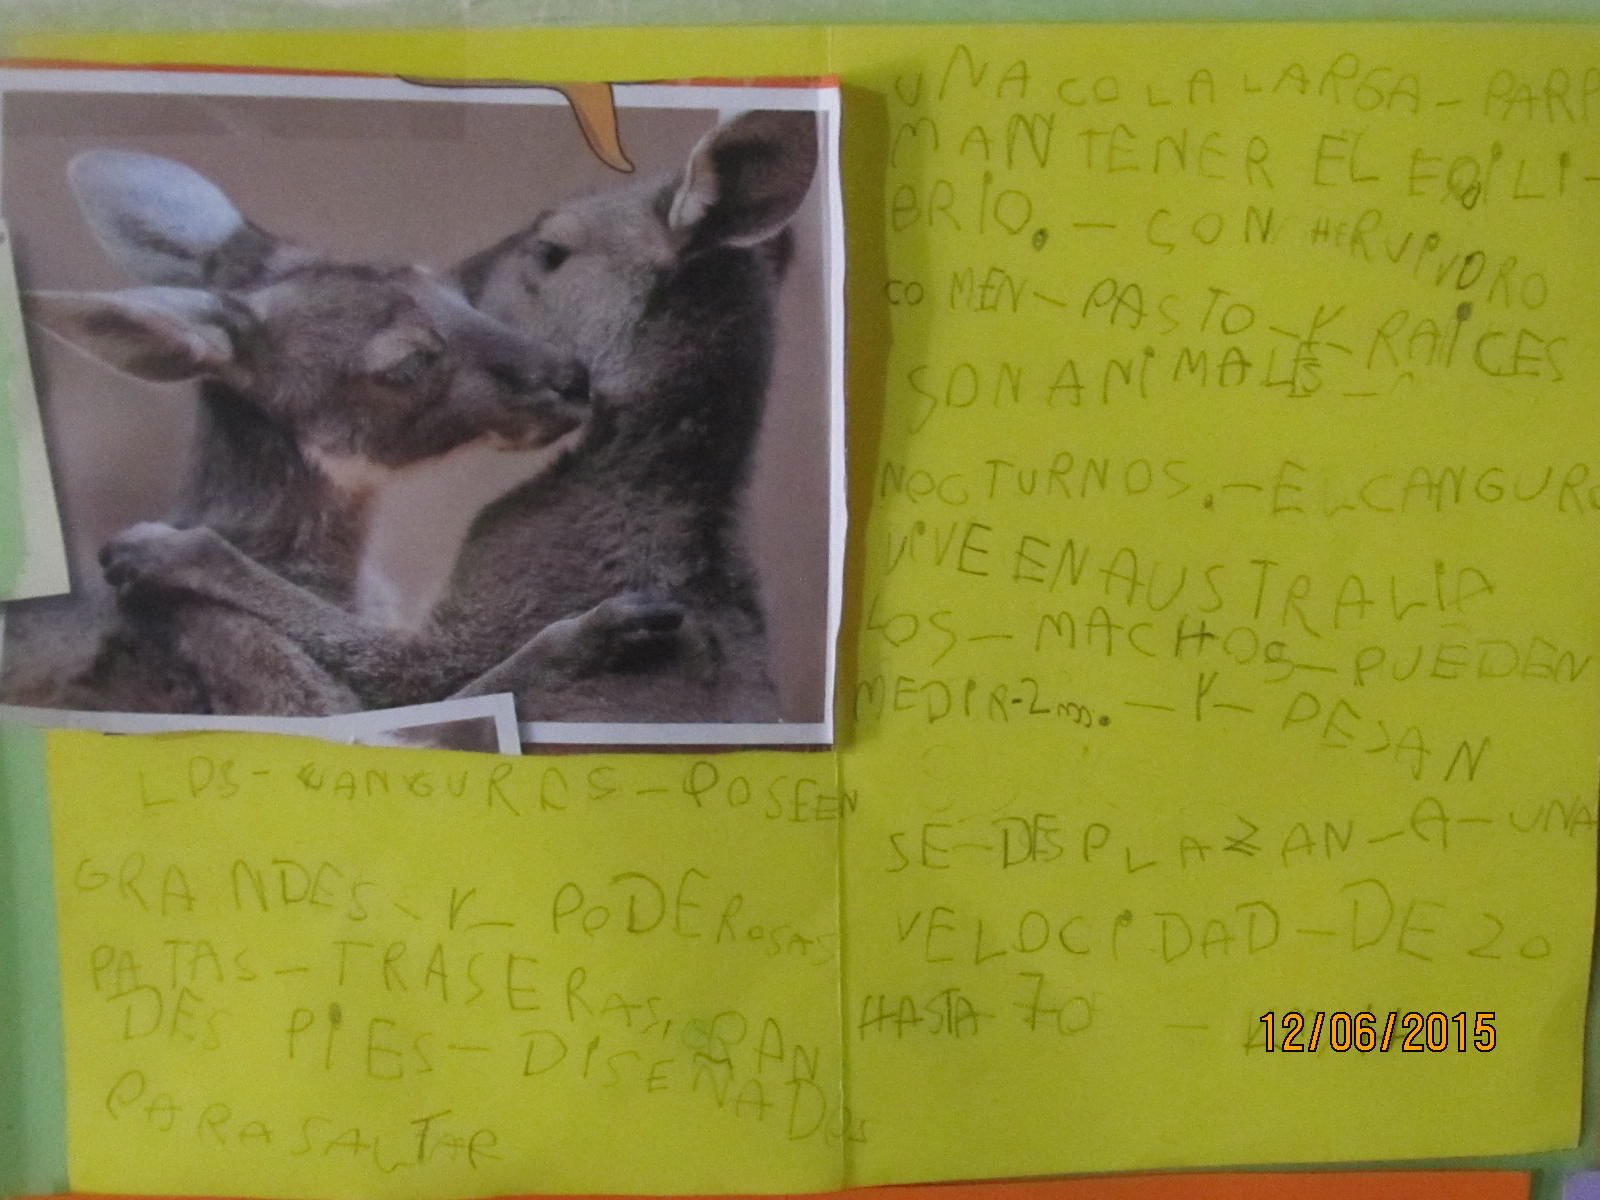 LOS-CANGUROS-POSEEN
GRANDES-Y-PODEROSAS
PATAS-TRASERAS, GRAN
DES PIES-DISEÑADOS
PARA SALTAR
UNA COLA LARGA-PARA
MANTENER EL EQILI-
BRIO.-SON HERVIVORO
COMEN-PASTO-Y-RAÍCES
SON ANIMALES-
NOCTURNOS.-EL CANGURO
VIVE EN AUSTRALIA
LOS-MACHOS-PUEDEN
MEDIR-2m.-Y-PESAN
SE-DESPLAZAN-A-UNA
VELOCIDAD-DE 20
HASTA 70 -
12/06/2015